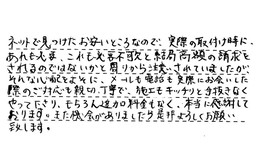 ネットで見つけたお安いところなので、実際の取付け時に、
あれもえま、これもえま不応と結局高額の請求を
されるのではないかと周りから言われていましたが、
そんな心配をよそに、メールも電話も実際にお会いした
際のご対応も親切、丁寧で、施工もキッチリと手抜きなく
やって下さり、もちろん追加料金もなく、本当に感謝して
おります。また機会がありましたら是非よろしくお願い
致します。